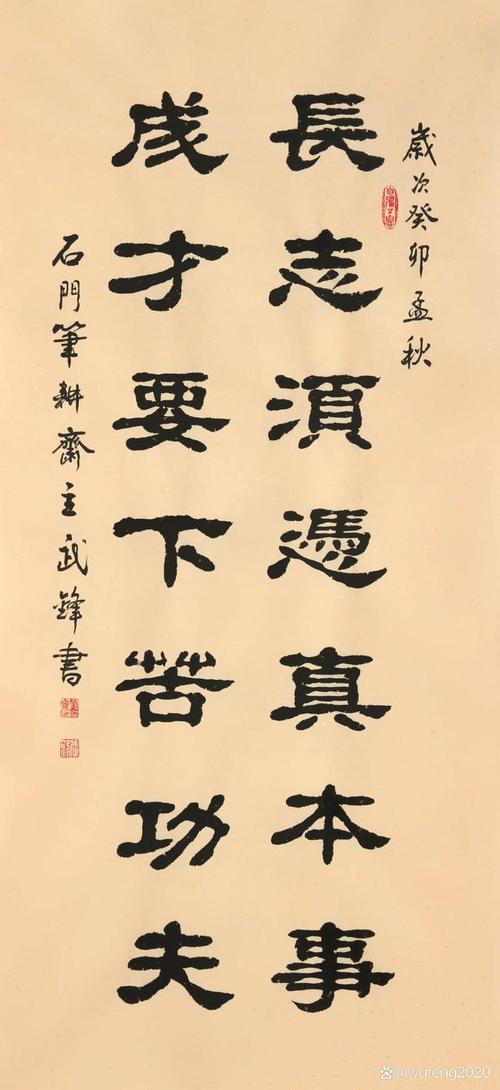 歲次癸卯孟秋
長志須憑真本事
成才要下苦功夫
石門筆耕齋主武鋒書
@wufeng2020